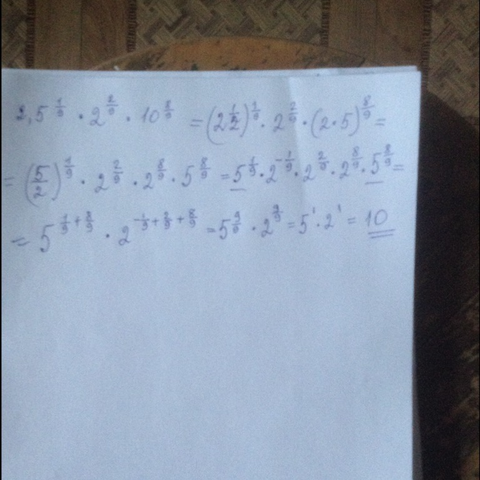 2,5^{1/9} · 2^{2/9} · 10^{8/9} = (2 1/2)^{1/9} · 2^{2/9} · (2·5)^{8/9} =
= (5/2)^{1/9} · 2^{2/9} · 2^{8/9} · 5^{8/9} = 5^{1/9} · 2^{-1/9} · 2^{2/9} · 2^{8/9} · 5^{8/9} =
= 5^{1/9+8/9} · 2^{-1/9+2/9+8/9} = 5^{9/9} · 2^{9/9} = 5^1 · 2^1 = 10